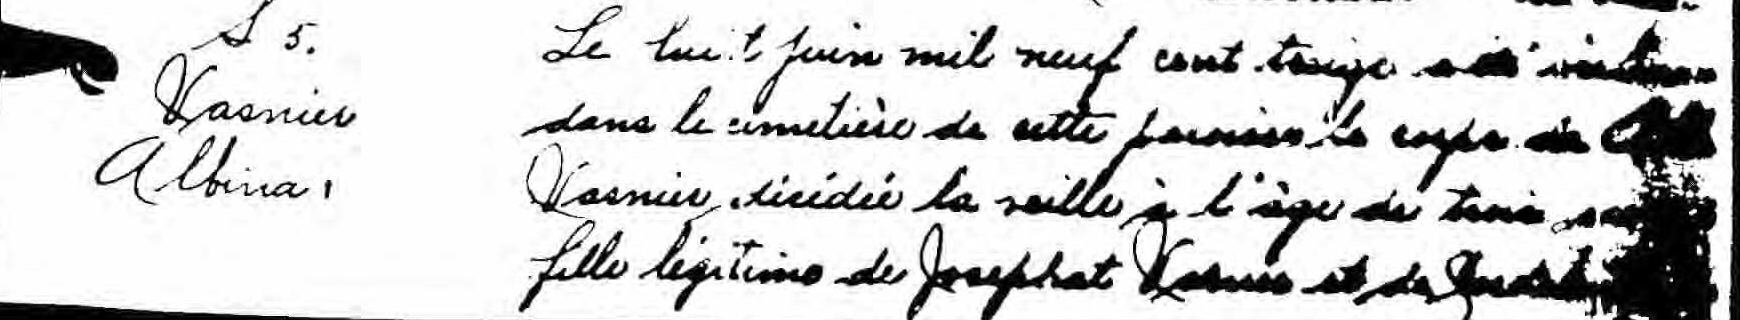 S 5.
Vasnier
Albina.
Le huit juin mil neuf cent treize a été
dans le cimetière de cette paroisse le corps de
Vasnier, décédée la veille à l'âge de trois
fille légitime de Josephat Vasnier et de